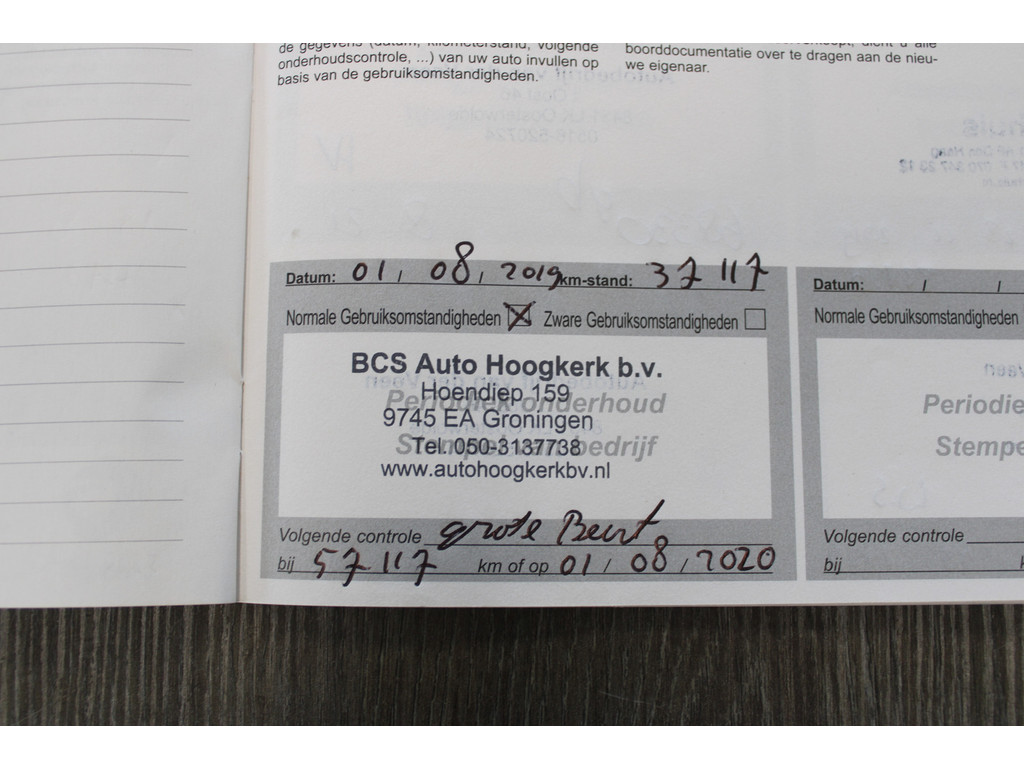 de gegevens (datum, kilometerstand, volgende
onderhoudscontrole, ...) van uw auto invullen op
basis van de gebruiksomstandigheden.
dient u alle
boorddocumentatie over te dragen aan de nieu-
we eigenaar.
Datum: 01 / 08 / 2019 km-stand: 37117
Normale Gebruiksomstandigheden ☒ Zware Gebruiksomstandigheden ☐
BCS Auto Hoogkerk b.v.
Hoendiep 159
Periodiek onderhoud
9745 EA Groningen
Stempel van bedrijf
Tel. 050-3137738
www.autohoogkerkbv.nl
Volgende controle grote Beurt
bij 57117 km of op 01 / 08 / 2020
Datum: / /
Normale Gebruiksomstandigheden
Periodie
Stempe
Volgende controle
bij